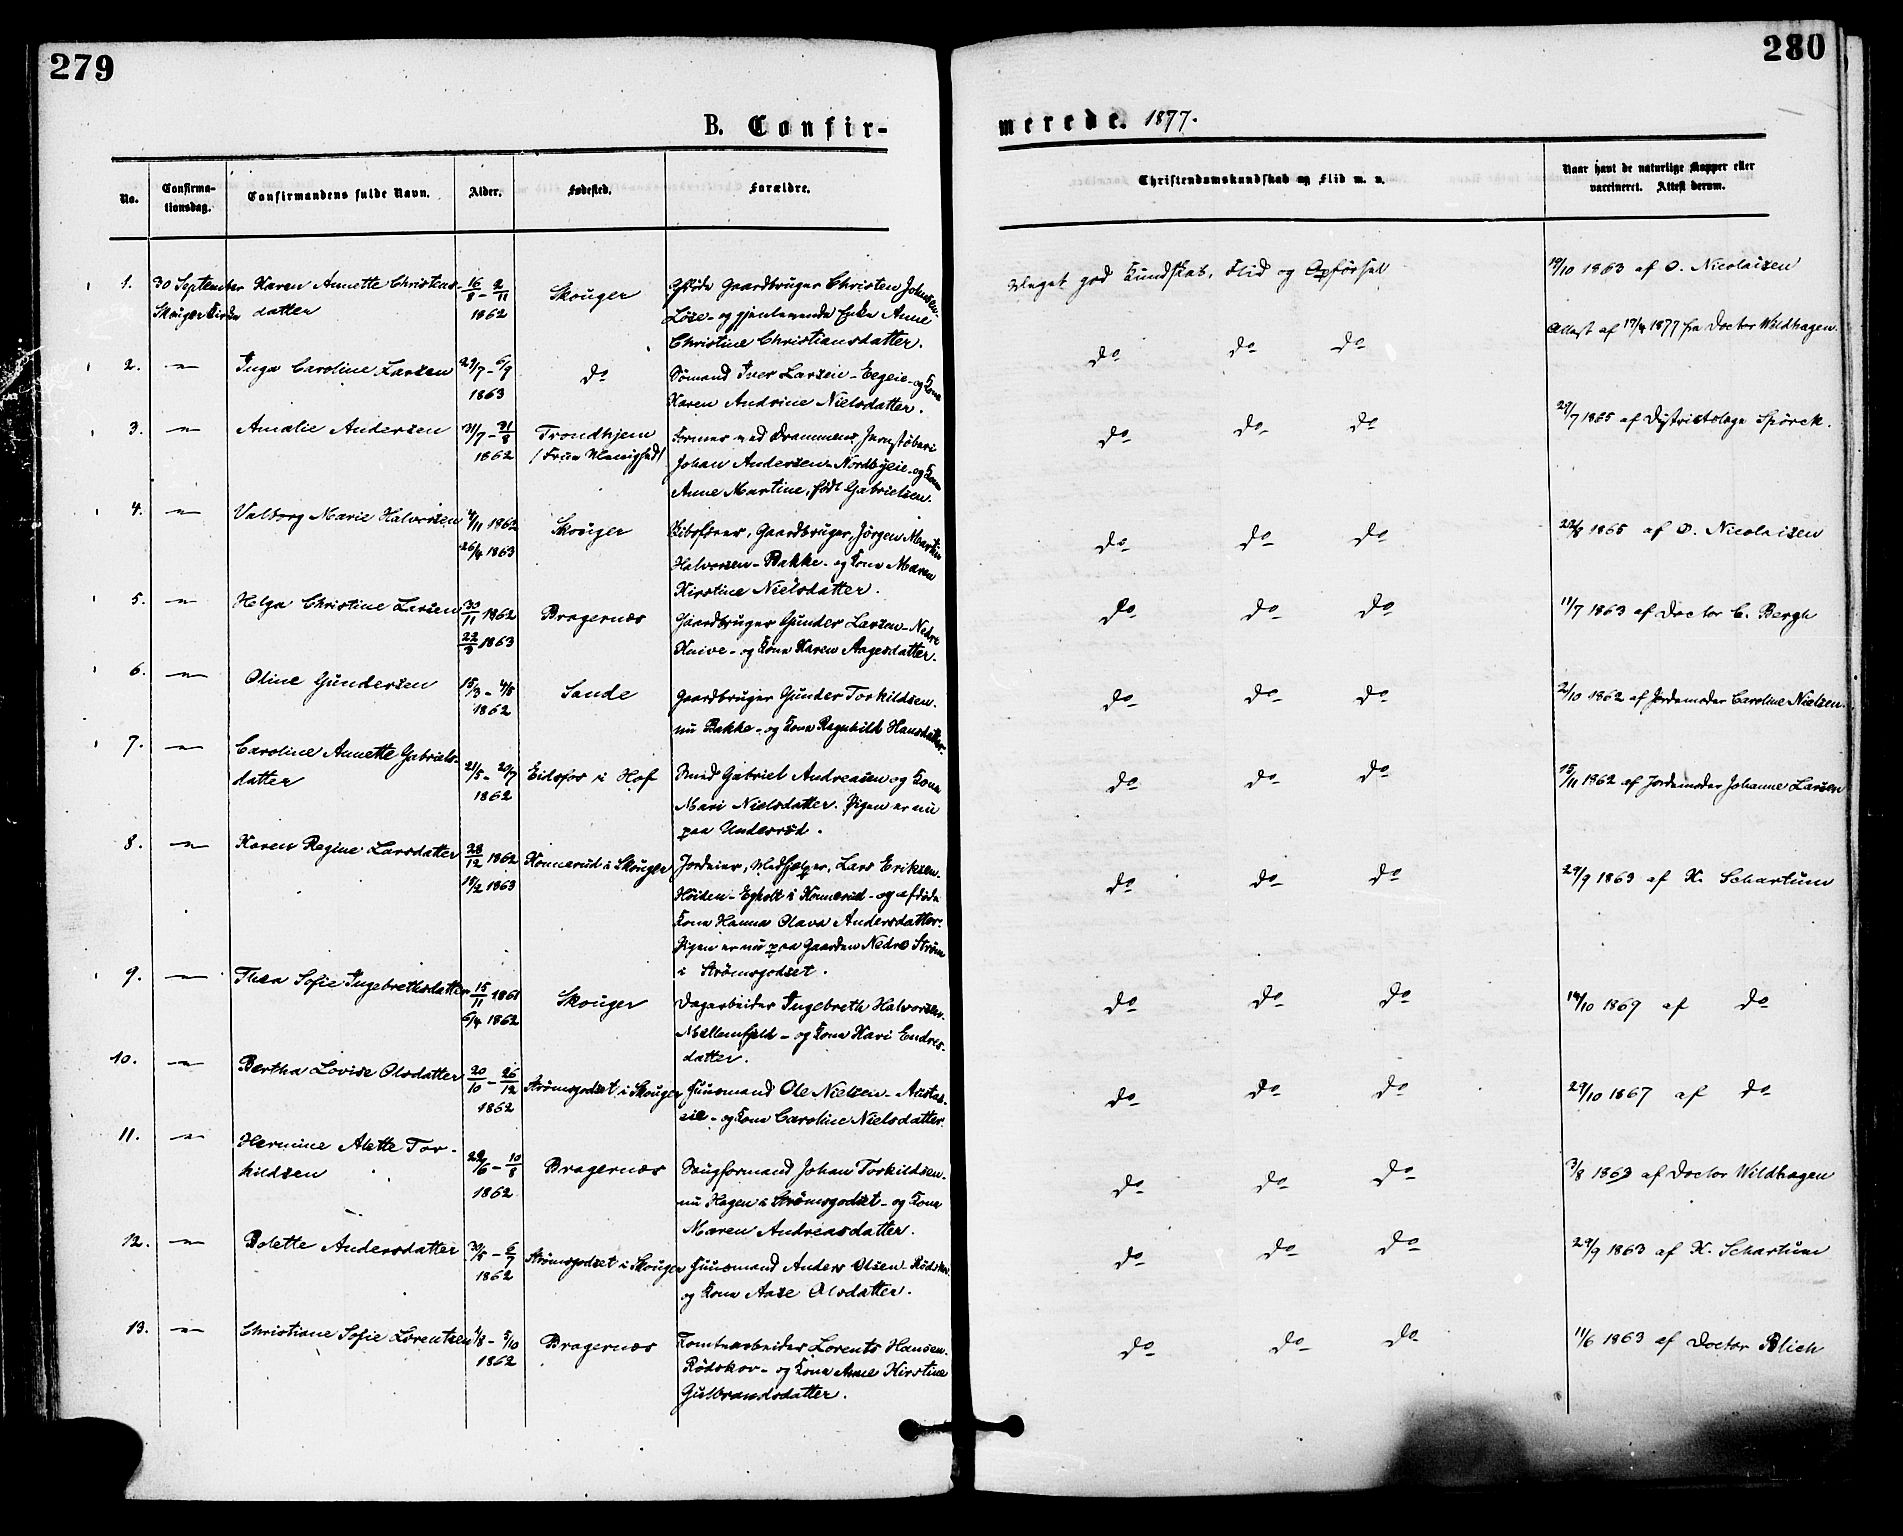 279
280
B. Confir-
merede. 1877.
No.
Confirma-
tionsdag.
Confirmandens fulde Navn.
Alder.
Fødested.
Forældre.
Christendomskundskab og Flid m. v.
Naar havt de naturlige Kopper eller
vaccineret. Attest derom.
1. 30 September Karen Annette Christens- 16/8 - 2/11 Skouger Gaardbruger Christen Johnsen
Skouger Kirke datter 1862 Løse - og gjenlevende Enke Anne
Christine Christiansdatter.
Meget god Kundskab, Flid og Opførsel 19/10 1863 af O. Nicolaisen
2. -"- Inga Caroline Larsen 29/7 - 6/9 do Sømand Iver Larsen - Eegeie - og Kone
1863 Karen Andrine Nielsdatter.
do do do Attest af 17/4 1877 fra Doctor Wildhagen.
3. -"- Amalie Andersen 31/7 - 31/8 Trondhjem Former ved Drammens Jernstøberi
1862 Johan Andersen - Nordbyeie - og Kone
Anne Martine, født Gabrielsen.
do do do 29/7 1865 af Districtslæge Spörck.
4. -"- Valborg Marie Halvorsen 4/11 1862 Skouger Gaardbruger, Jørgen Martin
26/4 1863 Halvorsen - Bakke - og Kone Maren
Kirstine Nielsdatter.
do do do 22/8 1865 af O. Nicolaisen
5. -"- Helga Christine Larsen 30/11 1862 Bragernæs Gaardbruger Gunder Larsen - Nedre
22/3 1863 Knive - og Kone Karen Aagesdatter.
do do do 11/7 1863 af Doctor C. Bergh
6. -"- Oline Gundersen 15/3 - 4/5 Sande Gaardbruger Gunder Torkildsen.
1862 nu Bakke - og Kone Ragnhild Hansdatter.
do do do 2/10 1862 af Jordemoder Caroline Nielsen
7. -"- Caroline Annette Gabriels- 21/5 - 20/7 Eidsfos i Hof Smed Gabriel Andreasen og Kone
datter 1862 Mari Nielsdatter. Pigen er nu
paa Underrud.
do do do 15/11 1862 af Jordemoder Johanne Larsen
8. -"- Karen Regine Larsdatter 28/12 1862 Konnerud i Skouger Jordeier, Medhjælper, Lars Eriksen.
15/2 1863 Høiden - Egholt i Konnerud - og afdøde
Kone Hanna Olava Andersdatter.
Pigen er nu paa Gaarden Nedre Strøm
i Strømsgodset.
do do do 29/9 1863 af K. Schartum
9. -"- Thea Sofie Ingebrethsdatter 15/11 1861 Skouger Dagarbeider Ingebreth Halvorsen.
6/4 1862 Møllenfjeld - og Kone Kari Endres-
datter.
do do do 14/10 1869 af do
10. -"- Bertha Lovise Olsdatter 20/10 - 26/12 Strømsgodset i Skouger Huusmand Ole Nielsen - Austad-
1862 eie - og Kone Caroline Nielsdatter.
do do do 29/10 1867 af do
11. -"- Hermine Alette Tor- 29/6 - 10/8 Bragernæs Saugformand Johan Torkildsen.
kildsen 1862 nu Hagen i Strømsgodset - og Kone
Maren Andreasdatter.
do do do 3/8 1863 af Doctor Wildhagen
12. -"- Bolette Andersdatter 30/5 - 6/7 Strømsgodset i Skouger Huusmand Anders Olsen Rødskov
1862 og Kone Aase Olsdatter.
do do do 29/9 1863 af K. Schartum
13. -"- Christiane Sofie Lorentsen 1/8 - 5/10 Bragernæs Tomtearbeider Lorents Hansen.
1862 Rødskov - og Kone Anne Kirstine
Gulbrandsdatter.
do do do 11/6 1863 af Doctor Blich